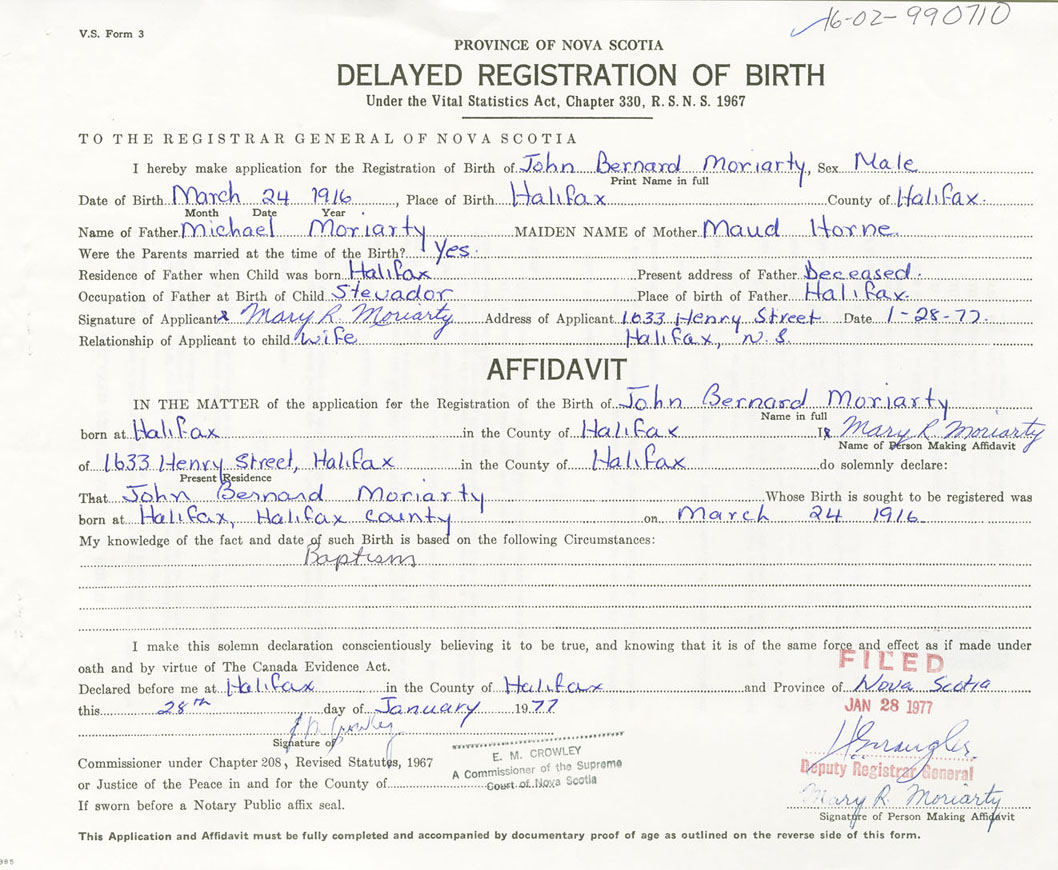 16-02-990710
V.S. Form 3
PROVINCE OF NOVA SCOTIA
DELAYED REGISTRATION OF BIRTH
Under the Vital Statistics Act, Chapter 330, R.S.N.S. 1967
TO THE REGISTRAR GENERAL OF NOVA SCOTIA
I hereby make application for the Registration of Birth of John Bernard Moriarty, Sex Male
Print Name in full
Date of Birth March 24 1916, Place of Birth Halifax County of Halifax.
Month Date Year
Name of Father Michael Moriarty MAIDEN NAME of Mother Maud Horne.
Were the Parents married at the time of the Birth? Yes.
Residence of Father when Child was born Halifax Present address of Father Deceased.
Occupation of Father at Birth of Child Stevador Place of birth of Father Halifax.
Signature of Applicant Mary R. Moriarty Address of Applicant 1633 Henry Street Date 1-28-77.
Relationship of Applicant to child wife Halifax, N.S.
AFFIDAVIT
IN THE MATTER of the application for the Registration of the Birth of John Bernard Moriarty
Name in full
born at Halifax in the County of Halifax I, Mary R. Moriarty
Name of Person Making Affidavit
of 1633 Henry Street, Halifax in the County of Halifax do solemnly declare:
Present Residence
That John Bernard Moriarty Whose Birth is sought to be registered was
born at Halifax, Halifax County on March 24 1916.
My knowledge of the fact and date of such Birth is based on the following Circumstances:
Baptism
I make this solemn declaration conscientiously believing it to be true, and knowing that it is of the same force and effect as if made under
oath and by virtue of The Canada Evidence Act.
FILED
Declared before me at Halifax in the County of Halifax and Province of Nova Scotia
this 28th day of January 1977
JAN 28 1977
Signature of
E. M. CROWLEY
A Commissioner of the Supreme
Court of Nova Scotia
Commissioner under Chapter 208, Revised Statutes, 1967
or Justice of the Peace in and for the County of
Deputy Registrar General
If sworn before a Notary Public affix seal.
Mary R. Moriarty
Signature of Person Making Affidavit
This Application and Affidavit must be fully completed and accompanied by documentary proof of age as outlined on the reverse side of this form.